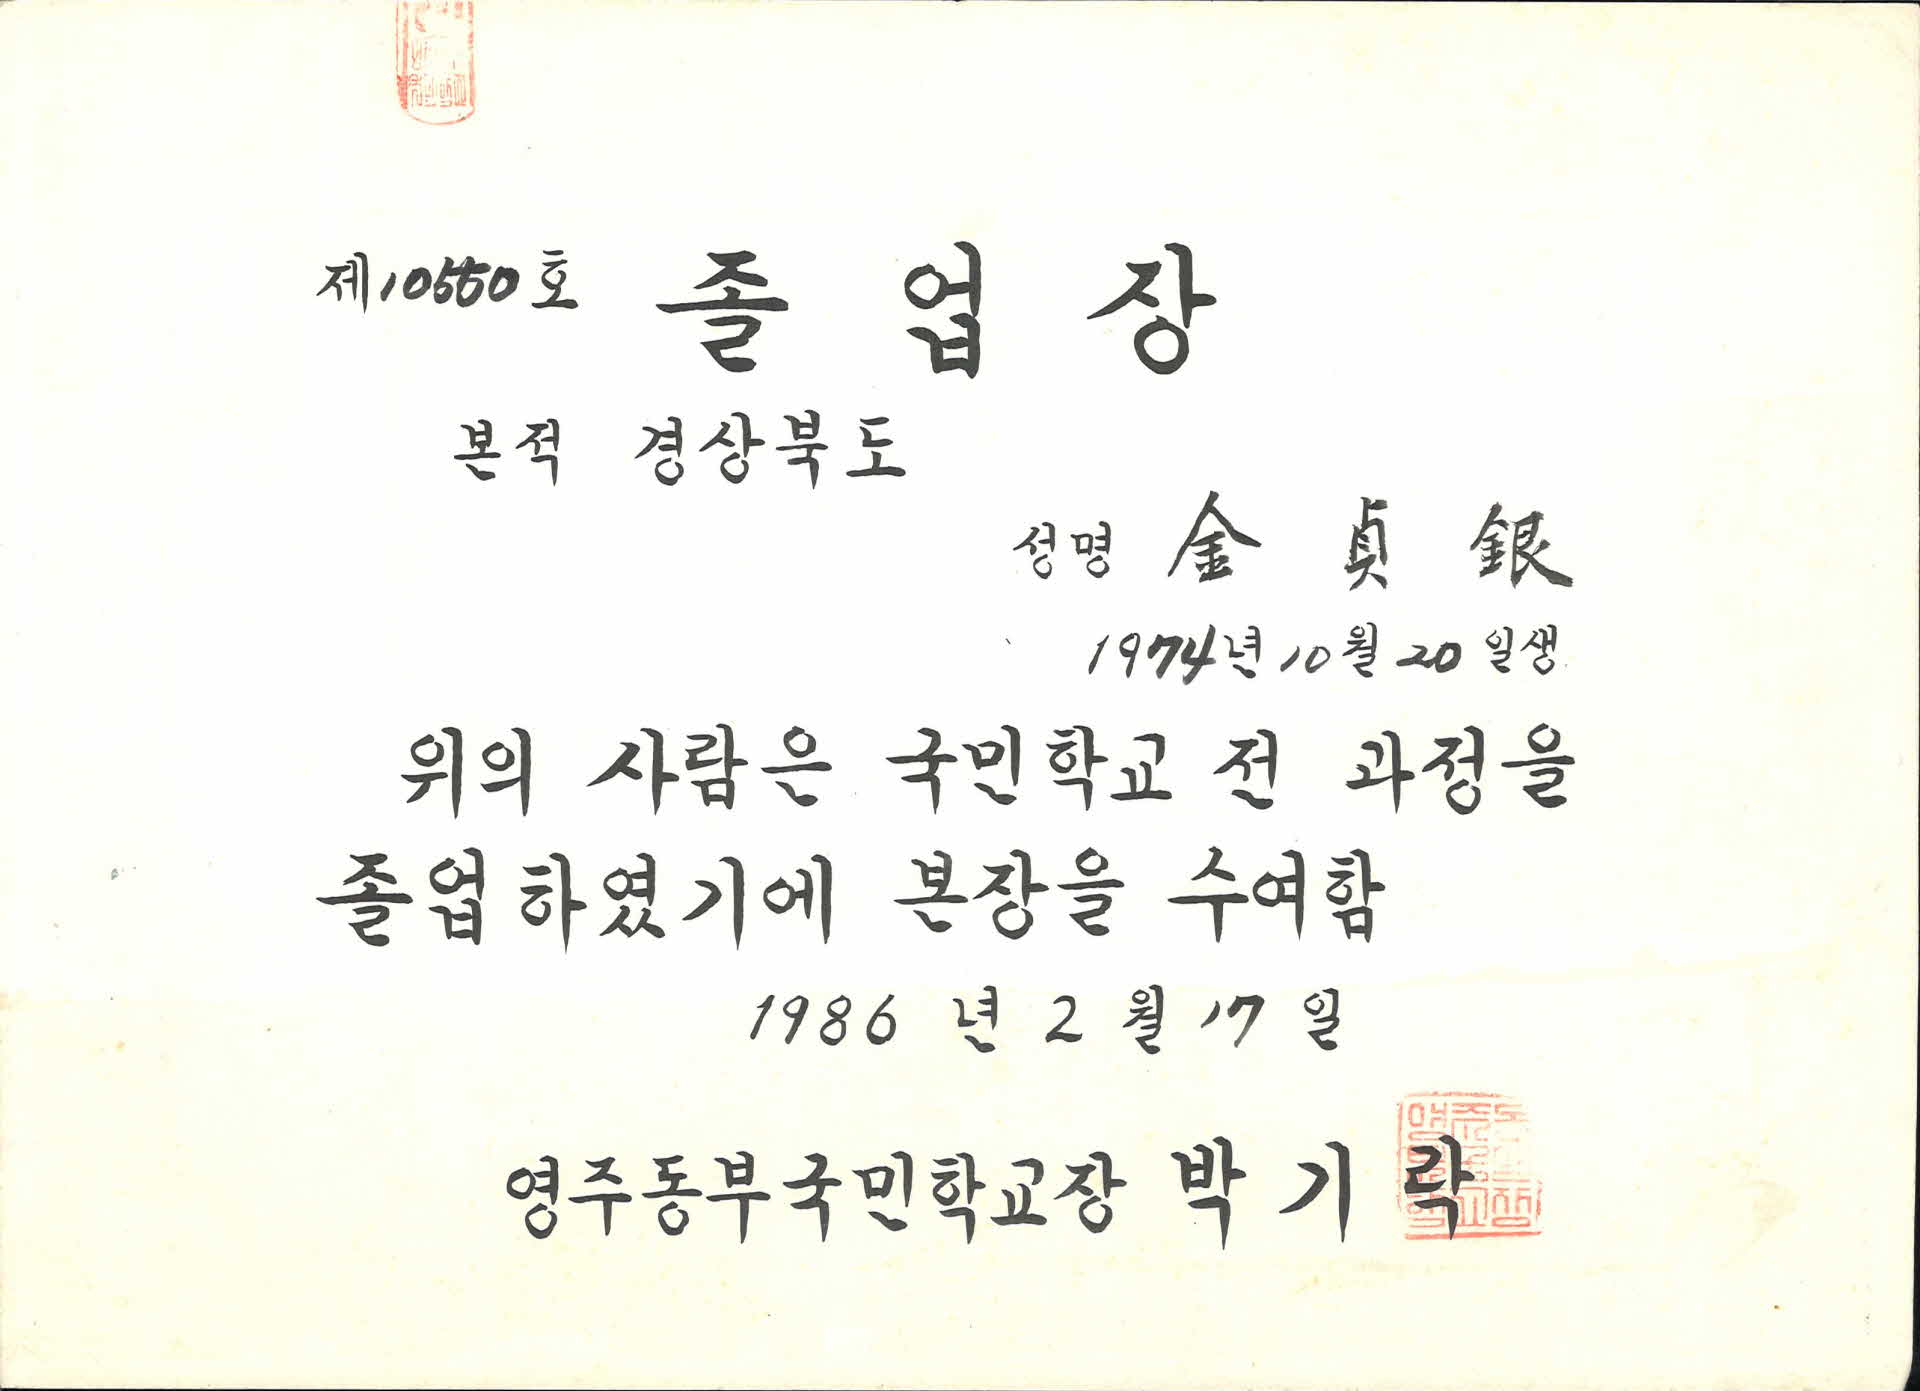 제10550호 졸업장
본적 경상북도
성명 金貞銀
1974년 10월 20일생
위의 사람은 국민학교 전 과정을
졸업하였기에 본장을 수여함
1986년 2월 17일
영주동부국민학교장 박기락